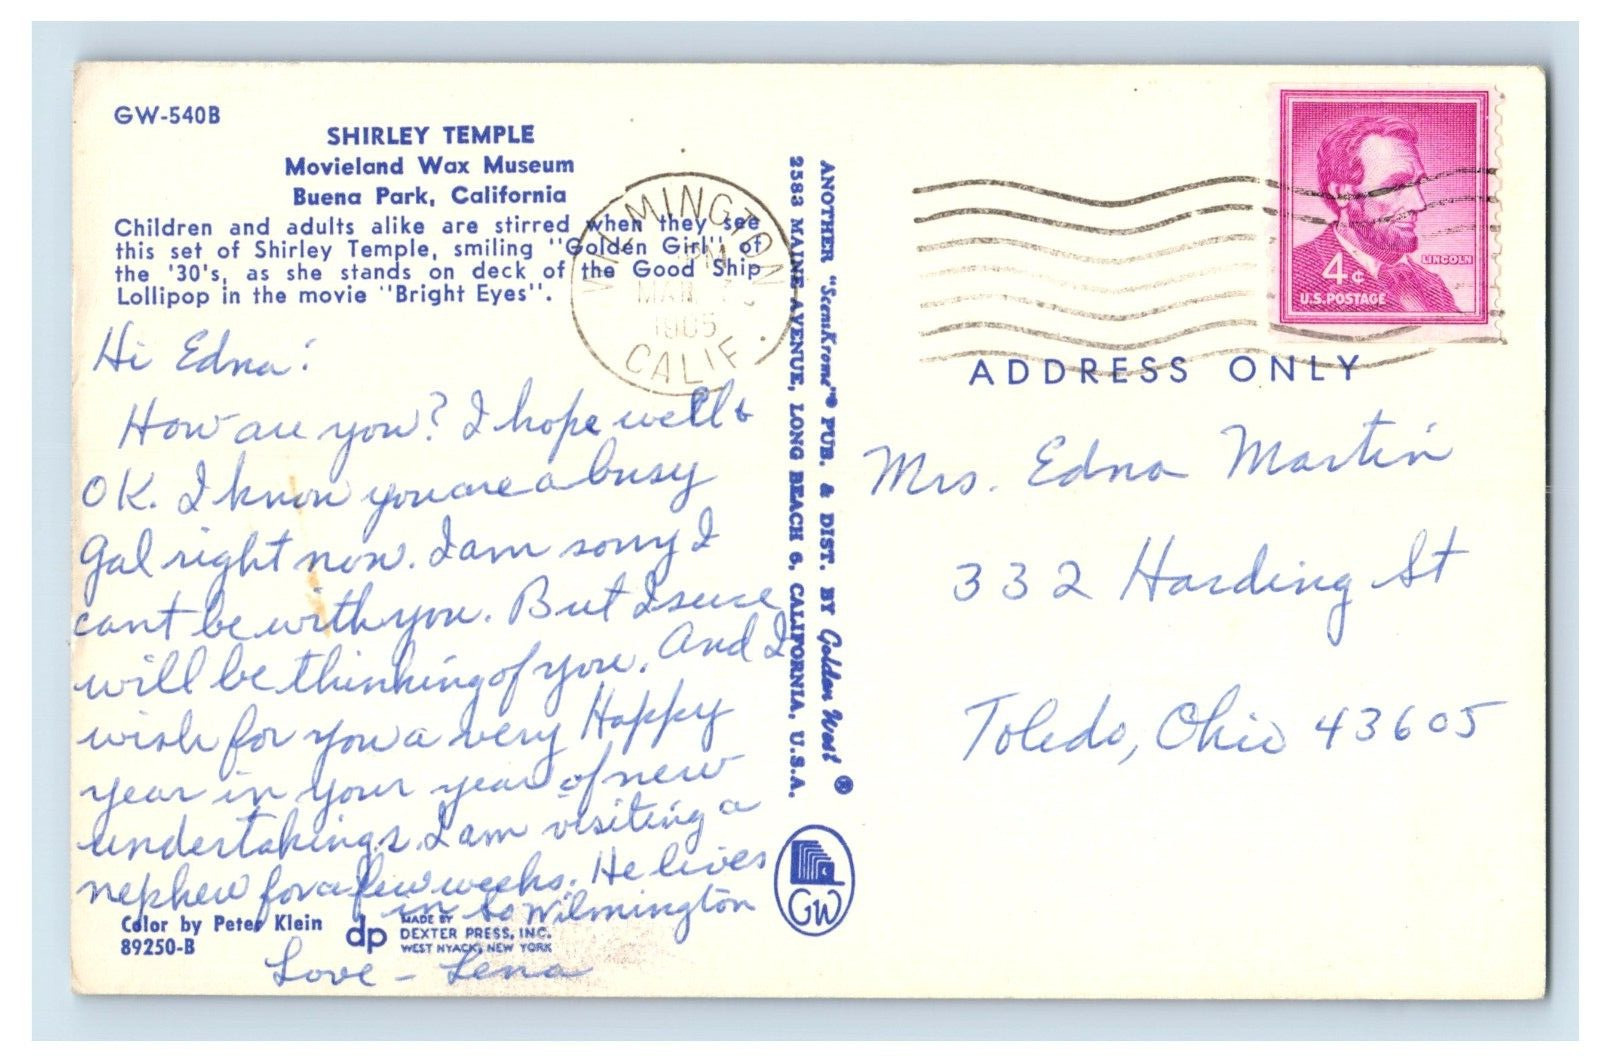 GW-540B
SHIRLEY TEMPLE
Movieland Wax Museum
Buena Park, California
Children and adults alike are stirred when they see
this set of Shirley Temple, smiling "Golden Girl" of
the '30's, as she stands on deck of the Good Ship
Lollipop in the movie "Bright Eyes".
Hi Edna:
How are you? I hope well &
OK. I know you are a busy
Gal right now. I am sorry I
cant be with you. But I sure
will be thinking of you. And I
wish for you a very Happy
year in your year of new
undertakings. I am visiting a
nephew for a few weeks. He lives
in So Wilmington
Love - Lena
Color by Peter Klein
89250-B
dp
MADE BY
DEXTER PRESS, INC.
WEST NYACK, NEW YORK
WILMINGTON
PM
MAR
1965
CALIF.
ANOTHER "ScenKrome"® PUB. & DIST. BY Golden West ®
2583 MAINE AVENUE, LONG BEACH 6, CALIFORNIA, U.S.A.
GW
4¢
LINCOLN
U.S. POSTAGE
ADDRESS ONLY
Mrs. Edna Martin
332 Harding St
Toledo, Ohio 43605